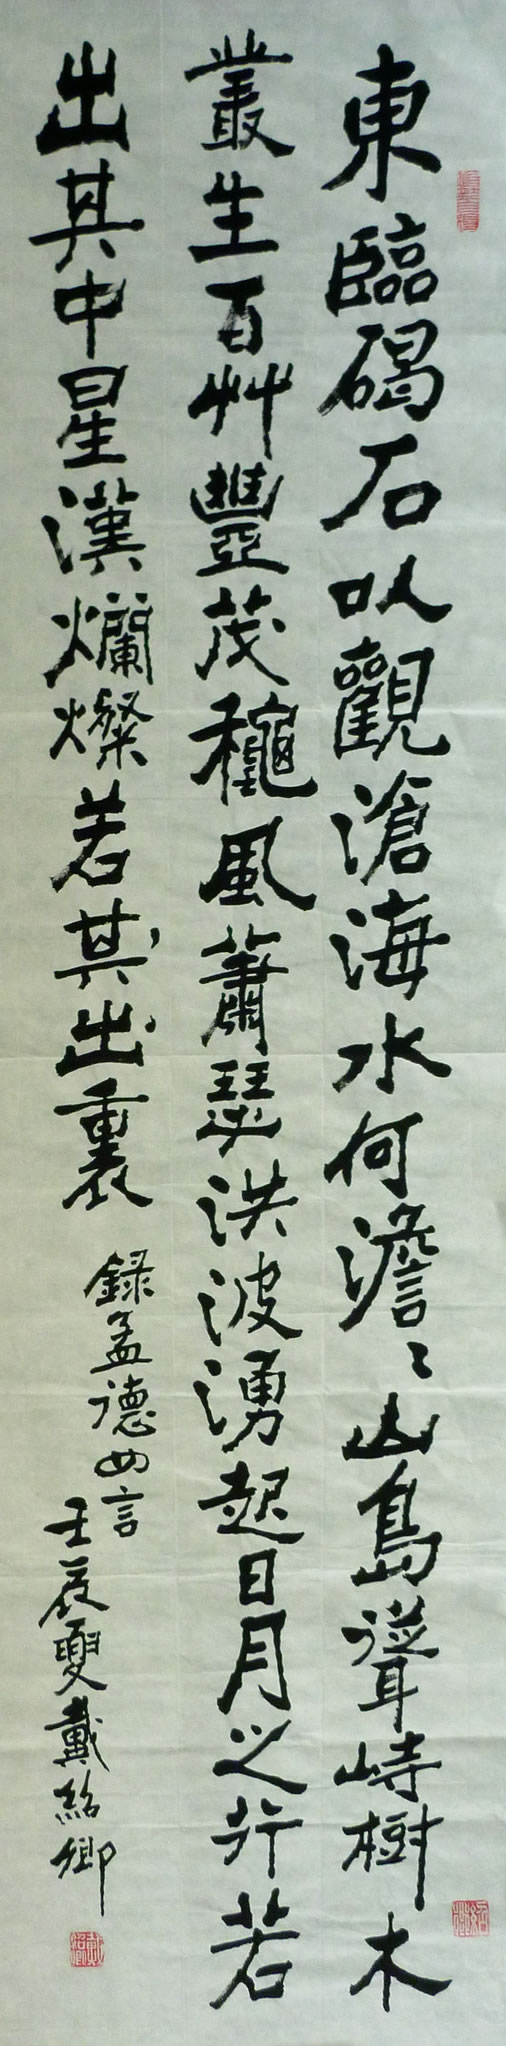 東臨碣石以觀滄海水何澹〻山島聳峙樹木
叢生百艸豐茂穐風蕭瑟洪波湧起日月之行若
出其中星漢爛燦若其出裏
録孟德四言
壬辰夏戴紹卿